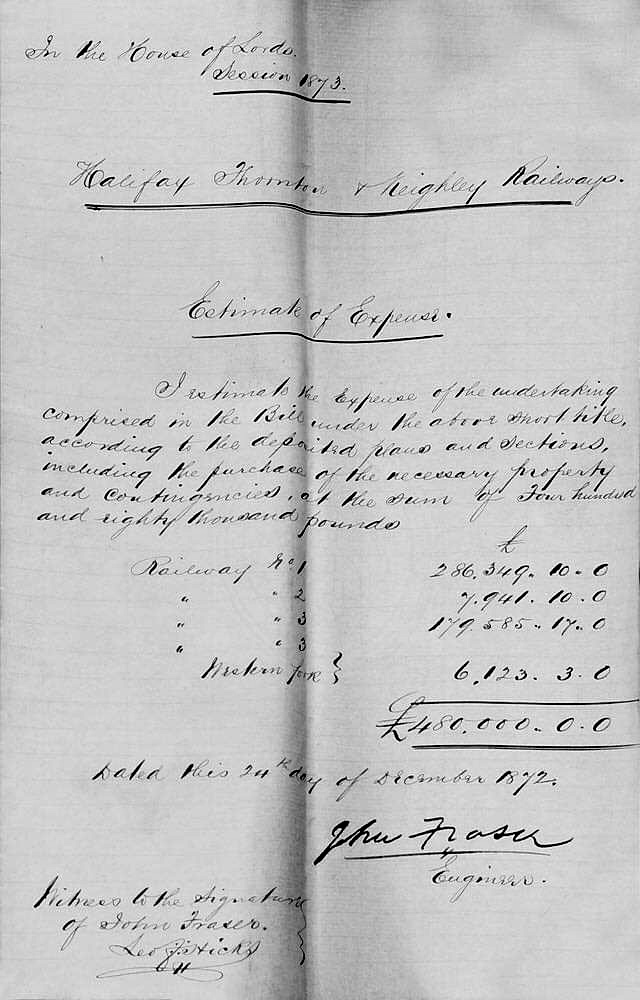 In the House of Lords.
Session 1873.
Halifax Thornton & Keighley Railways.
Estimate of Expense.
I estimate the Expense of the undertaking
comprised in the Bill under the above short title,
according to the deposited plans and sections,
including the purchase of the necessary property
and contingencies, at the sum of Four hundred
and eighty thousand pounds
£
Railway No. 1 286,349.. 10.. 0
" " 2 7,941. 10. 0
" " 3 179,585.. 17.. 0
" " 3
Western Fork } 6,123. 3. 0
£480,000.. 0. 0
Dated this 24th day of December 1872.
John Fraser
Engineer.
Witness to the Signature
of John Fraser. }
Hicks